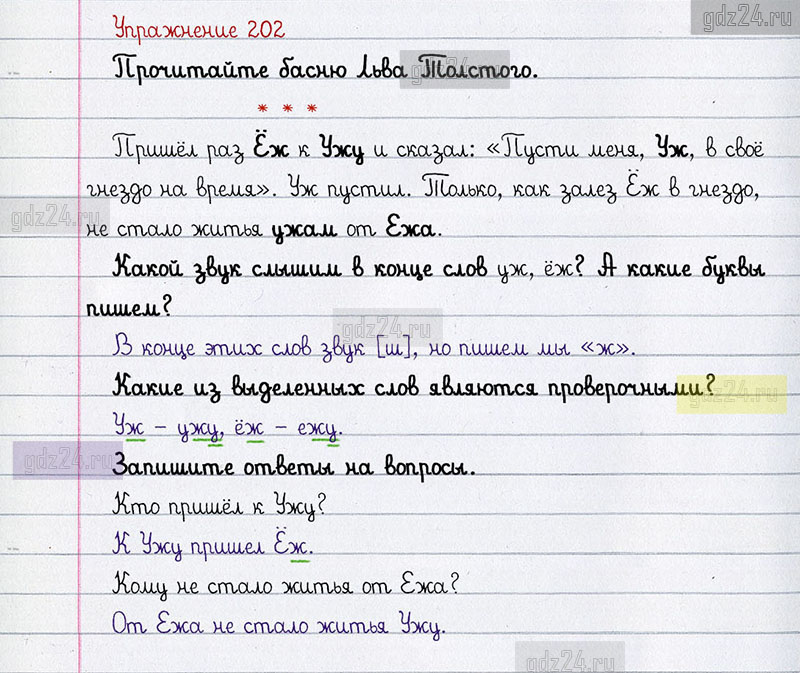 gdz24.ru
Упражнение 202
Прочитайте басню Льва Толстого.
gdz24.ru
* * *
Пришёл раз Ёж к Ужу и сказал: «Пусти меня, Уж, в своё
гнездо на время». Уж пустил. Только, как залез Ёж в гнездо,
gdz24.ru
не стало житья ужам от Ежа.
Какой звук слышим в конце слов уж, ёж? А какие буквы
пишем?
gdz24.ru
В конце этих слов звук [ш], но пишем мы «ж».
Какие из выделенных слов являются проверочными?
gdz24.ru
Уж – ужу, ёж – ежу.
gdz24.ru
Запишите ответы на вопросы.
Кто пришёл к Ужу?
К Ужу пришел Ёж.
Кому не стало житья от Ежа?
От Ежа не стало житья Ужу.
gdz24.ru